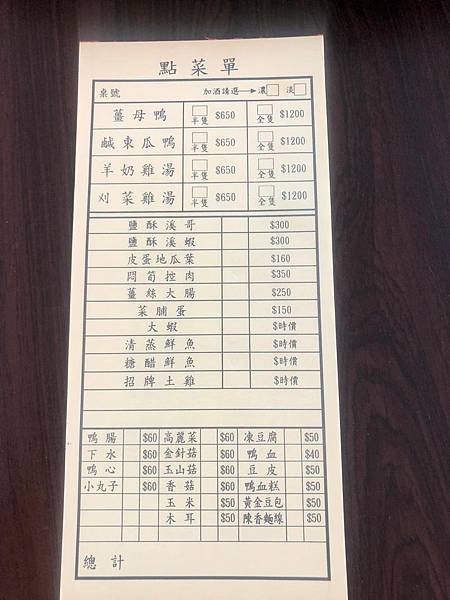 點菜單
桌號 加酒請選→濃 淡
薑母鴨 半隻 $650 全隻 $1200
鹹東瓜鴨 半隻 $650 全隻 $1200
羊奶雞湯 半隻 $650 全隻 $1200
刈菜雞湯 半隻 $650 全隻 $1200
鹽酥溪哥 $300
鹽酥溪蝦 $300
皮蛋地瓜葉 $160
悶筍控肉 $350
薑絲大腸 $250
菜脯蛋 $150
大蝦 $時價
清蒸鮮魚 $時價
糖醋鮮魚 $時價
招牌土雞 $時價
鴨腸 $60 高麗菜 $60 凍豆腐 $50
下水 $60 金針菇 $60 鴨血 $40
鴨心 $60 玉山菇 $60 豆皮 $50
小丸子 $60 香菇 $60 鴨血糕 $50
玉米 $50 黃金豆包 $50
木耳 $50 陳香麵線 $50
總計